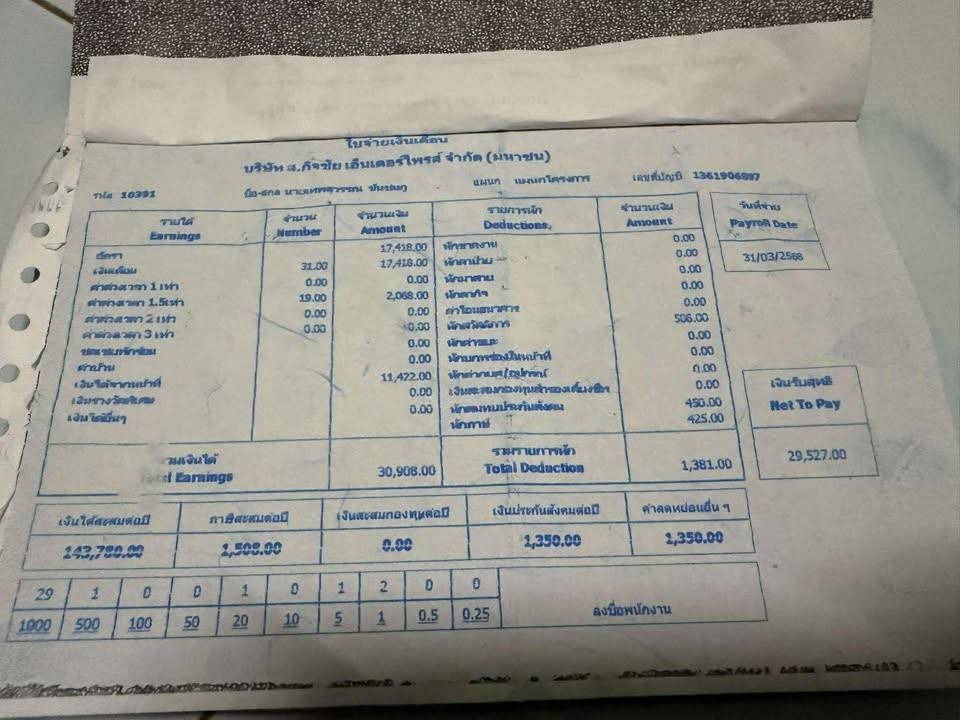 ใบจ่ายเงินเดือน
บริษัท ส.กิจชัย เอ็นเตอร์ไพรส์ จำกัด (มหาชน)
รหัส 10391 ชื่อ-สกล แผนก แผนกโครงการ เลขที่บัญชี
รายได้ จำนวน จำนวนเงิน รายการหัก จำนวนเงิน วันที่จ่าย
Earnings Number Amount Deductions, Amount Payroll Date
อัตรา 17,418.00 หักขาดงาน 0.00
เงินเดือน 31.00 17,418.00 หักลาป่วย 0.00 31/03/2568
ค่าล่วงเวลา 1 เท่า 0.00 0.00 หักมาสาย 0.00
ค่าล่วงเวลา 1.5เท่า 19.00 2,068.00 หักลากิจ 0.00
ค่าล่วงเวลา 2 เท่า 0.00 0.00 ค่าโอนธนาคาร 0.00
ค่าล่วงเวลา 3 เท่า 0.00 0.00 หักสวัสดิการ 506.00
ชดเชยพักร้อน 0.00 0.00
ค่าบ้าน 0.00 0.00
เงินได้จากหน้าที่ 11,422.00 0.00
เงินรางวัลพิเศษ 0.00 เงินสะสมกองทุนสำรองเลี้ยงชีพ 0.00
เงินได้อื่นๆ 0.00 หักสมทบประกันสังคม 450.00
หักภาษี 425.00
เงินรับสุทธิ
Net To Pay
29,527.00
รวมเงินได้ รวมรายการหัก
Total Earnings 30,908.00 Total Deduction 1,381.00
เงินได้สะสมต่อปี ภาษีสะสมต่อปี เงินสะสมกองทุนต่อปี เงินประกันสังคมต่อปี ค่าลดหย่อนอื่น ๆ
143,780.00 1,508.00 0.00 1,350.00 1,350.00
29 1 0 0 1 0 1 2 0 0
1000 500 100 50 20 10 5 1 0.5 0.25 ลงชื่อพนักงาน